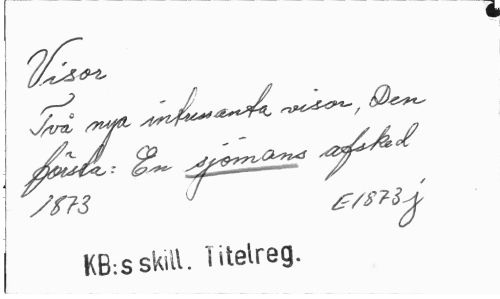 Visor
Två nya intressanta visor, Den
första: En sjömans afsked
1873 E1873j
KB:s skill. Titelreg.